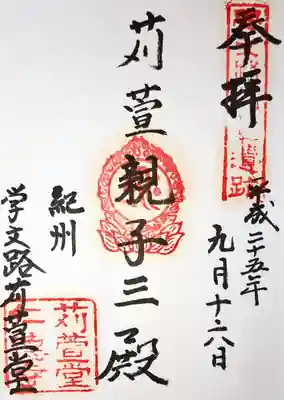 奉拝
平成二十五年
九月十八日
苅萱親子三殿
紀州
学文路苅萱堂
苅萱堂